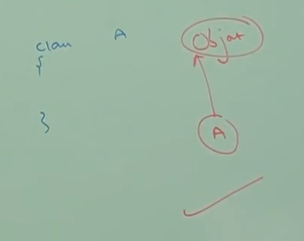 class A
{
}
Object
A